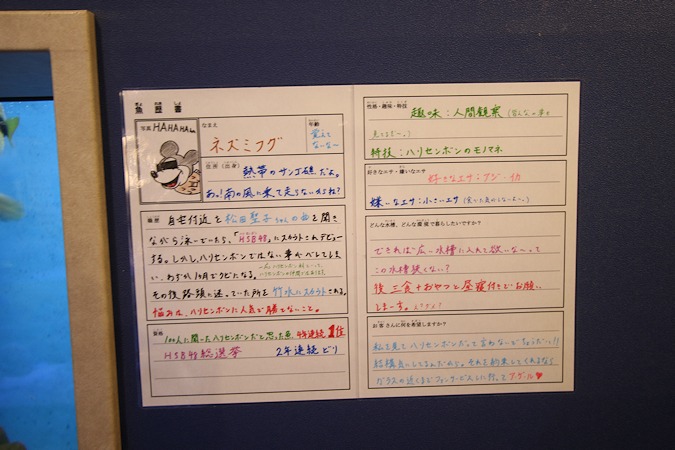 魚歴書
写真
HAHAHA
なまえ
ネズミフグ
年齢
覚えて
なーなー
住所(出身)
熱帯のサンゴ礁だよ。
あっ!南の風に乗って走らないからね?
職歴
自宅付近を松田聖子ちゃんの曲を聞き
ながら泳いでいたら、「HSB48」にスカウトされデビュー
する。しかし、ハリセンボンではない事がバレてしま
い、わずか1ヶ月でクビになる。
その後路頭に迷っていた所を竹水にスカウトされる。
悩みは、ハリセンボンに人気で勝てないこと。
資格
100人に聞いたハリセンボンだと思った魚 4年連続1位
HSB48総選挙 2年連続ビリ
性格・趣味・特技
趣味:人間観察
特技:ハリセンボンのモノマネ
好きなエサ・嫌いなエサ
好きなエサ:アジ・イカ
嫌いなエサ:小さいエサ
どんな水槽、どんな環境で暮らしたいですか?
できれば、広〜い水槽に入れて欲しいな〜って
この水槽狭くない?
後、三食+おやつと昼寝付きでお願い
しまーす。
お客さんに何を希望しますか?
私を見てハリセンボンだって言わないでちょうだい!!
結構気にしてるんだから。それを約束してくれるなら
ガラスの近くまでファンサービスしに行って